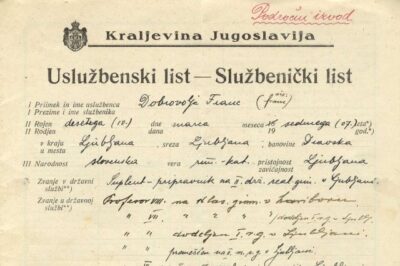 Področni izvod
Kraljevina Jugoslavija
Uslužbenski list — Službenički list
I Priimek in ime uslužbenca
I Prezime i ime službenika
Dobrovoljc Franc
II Rojen desetega (10.) dne marca meseca 19 sedmega (07.) leta
II Rodjen dana 19 god.
v kraju Ljubljana, sreza Ljubljana, banovine Dravska
u mestu
III Narodnost slovenska Verozakon rim.-kat. pristojnost Ljubljana
vera zavičajnost
Zvanje v državni službi Suplent-pripravnik na II. drž. real. gimn. v Ljubljani.
Zvanje u državnoj službi Profesor VIII. na klas. gimn. v Mariboru
" VII. " " " dodeljen I. r. g. v Ljublj.
" " dodeljen I. r. g. v Ljubljani.
" " premeščen na I. m. r. g. v Ljubljani